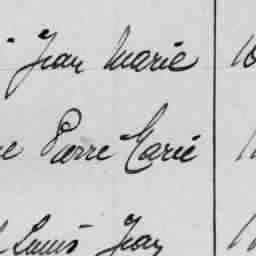 Jean Marie
Pierre Marie
Louis Jean